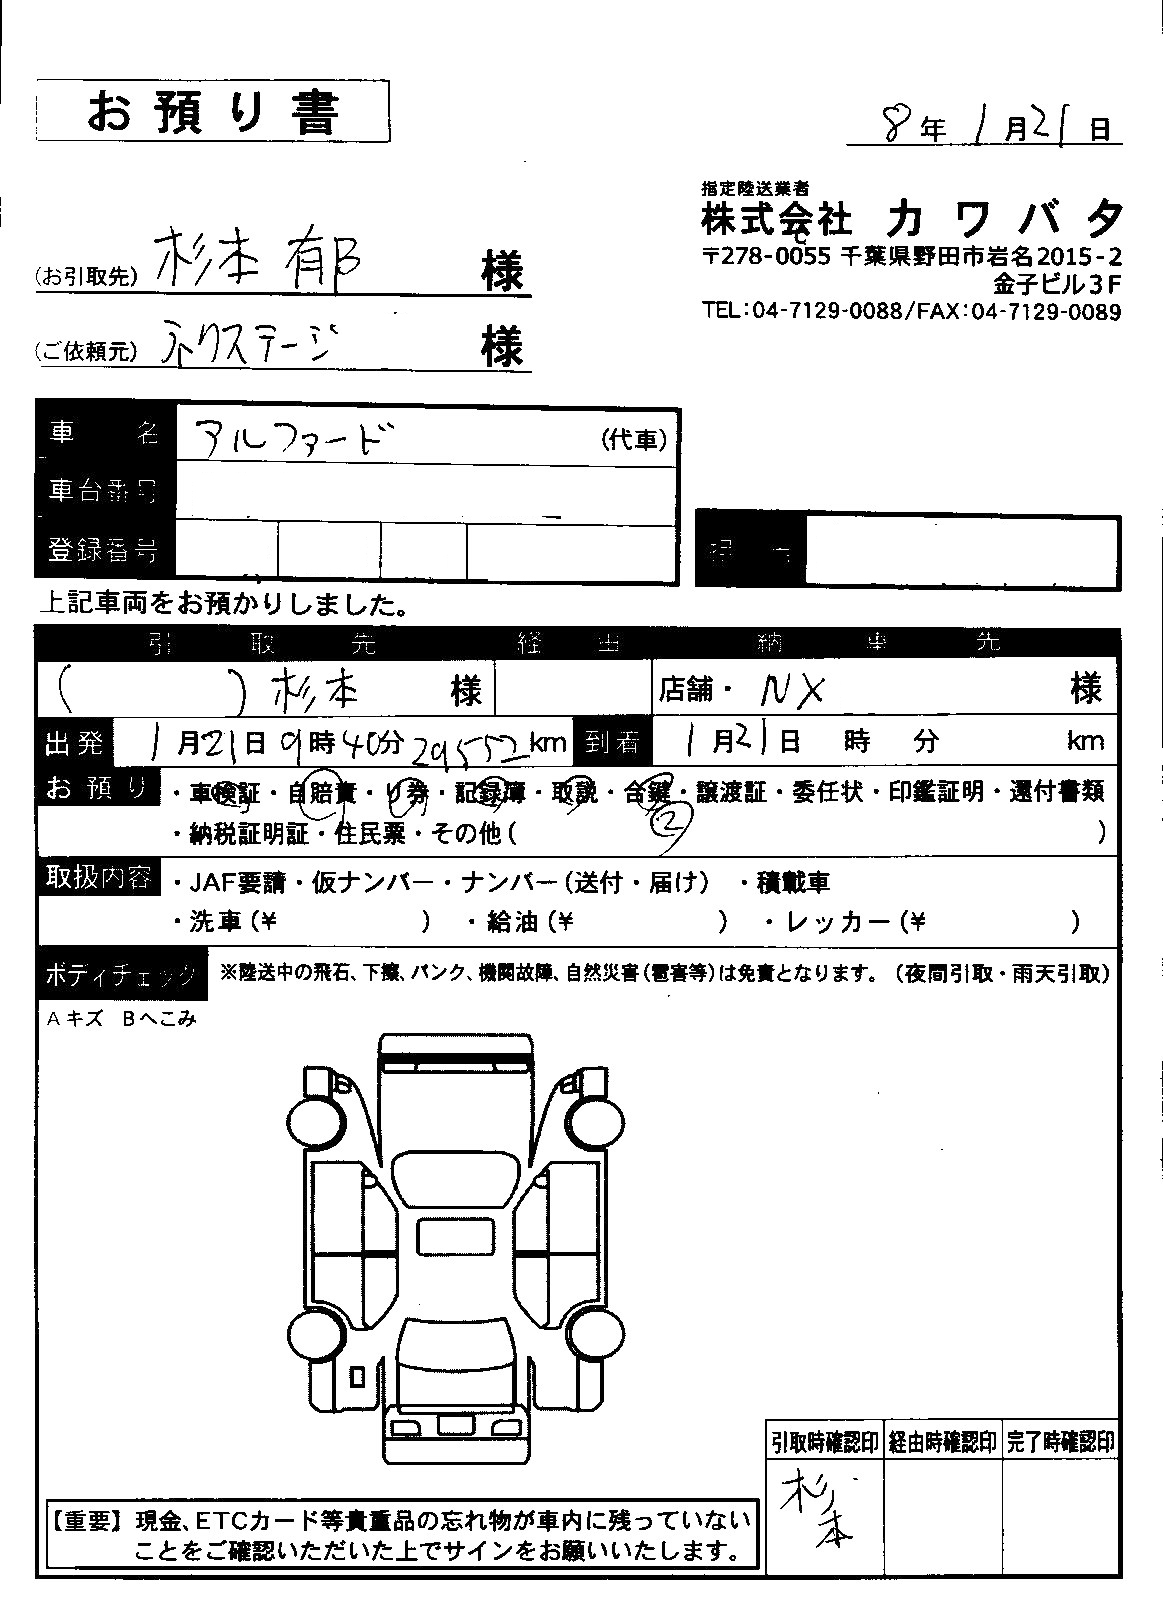 お預り書
8年 1月21日
指定陸送業者
株式会社 カワバタ
〒278-0055 千葉県野田市岩名2015-2
金子ビル3F
TEL:04-7129-0088/FAX:04-7129-0089
(お引取先) 杉本 郁 様
(ご依頼元) ネクステージ 様
車名 アルファード (代車)
車台番号
登録番号
担当
上記車両をお預かりしました。
引取先 経由 納車先
( ) 杉本 様 店舗・ NX 様
出発 1月21日9時40分 29552km 到着 1月21日 時 分 km
お預り ・車検証・自賠責・リ券・記録簿・取説・合鍵・譲渡証・委任状・印鑑証明・還付書類
②
・納税証明証・住民票・その他( )
取扱内容 ・JAF要請・仮ナンバー・ナンバー(送付・届け) ・積載車
・洗車(¥ ) ・給油(¥ ) ・レッカー(¥ )
ボディチェック ※陸送中の飛石、下擦、パンク、機関故障、自然災害(雹害等)は免責となります。(夜間引取・雨天引取)
Aキズ Bへこみ
引取時確認印 経由時確認印 完了時確認印
杉本
【重要】現金、ETCカード等貴重品の忘れ物が車内に残っていない
ことをご確認いただいた上でサインをお願いいたします。